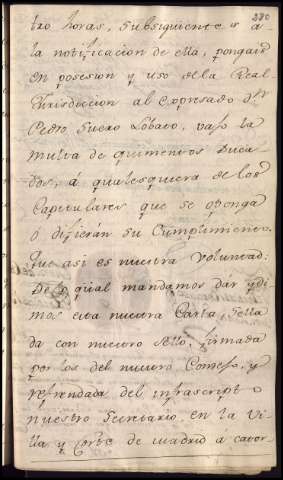 280
tro horas, subsiguientes a
la notificacion de ella, pongais
en posesion y uso de la Real
Jurisdiccion al expresado Dn
Pedro, Suero Lobato, vajo la
multa de quinientos Duca
dos, á qualesquiera de los
Capitulares que se oponga
ó difierán su Cumplimiento.
Que asi es nuestra Voluntad:
De lo qual mandamos dár y di
mos esta nuestra Carta, Sella
da con nuestro Sello, firmada
por los del nuestro Consejo, y
refrendada del infrascripto
nuestro Secretario en la Vi
lla y Corte de Madrid a cator